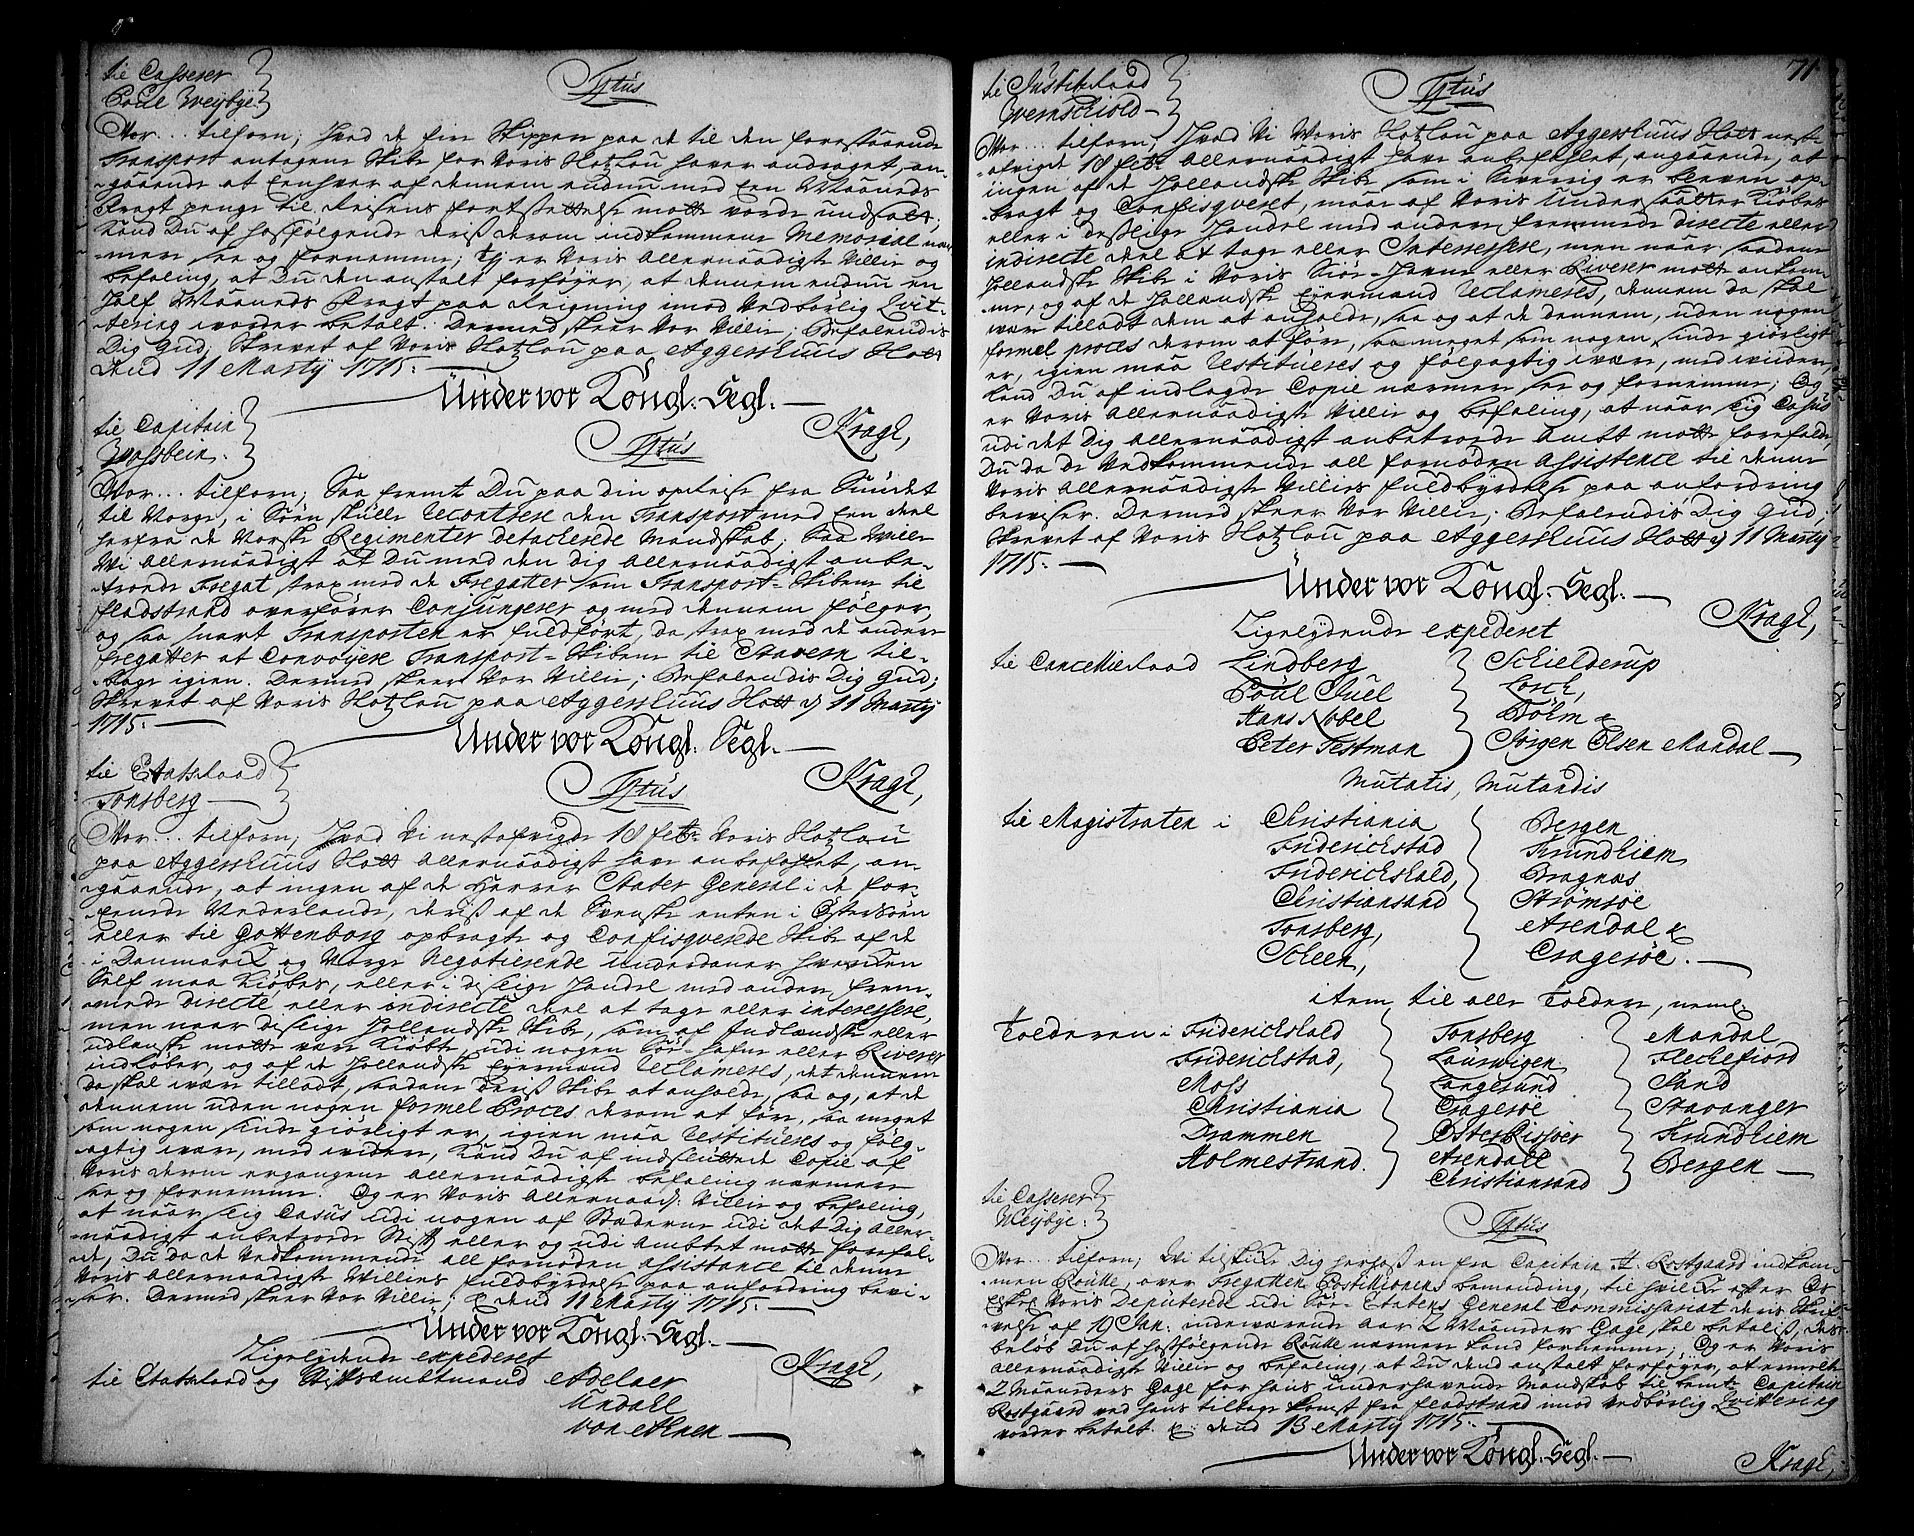 til Casserer
Poul Weybye
Tytus
Vor... tilforn; Hvad de fire Skipper paa de til den forestaaende
Transport antagene Skibe for Voris Hotzlou haver andraget, an-
gaaende at Eenhver af dennem endnu med Een Maaneds
Fragt penge til Reisens fortsettelse motte vorde undsatt,
Kand Du af hosfølgende deris derom indkommene Memorial ner-
mere see og fornemme; thj er Voris Allernaadigste Villie og
befaling, at Du den anstalt forføyer, at dennem endnu en
Half Maaneds Fragt paa Reigning imod Vedbørlig Qvit-
tering worder betalt. Dermed skeer Vor Villie; Befalendis
Dig Gud; Skrevet af Voris Hotzlou paa Aggershuus Slott
dend 11 Marty 1715.
Under vor Kongl. Segl.
Kragh,
til Capitain
Wosbein.
Tytus
Vor... tilforn; Saa fremt Du paa din opreise fra Sundet
til Norge, i Søen skulle Recontrere den Transport med Een deel
herfra de Norske Regimenter detacherede Mandskab; Saa Ville
Vi Allernaadigst at Du med den dig Allernaadigst anbe-
troede Fregat, strax med de Fregatter som Transport-Skibene til
fladstrand overfører Conjungerer og med dennem følger,
og saa snart Transporten er fuldført, da strax med de andere
fregatter at Convoyere Transport-Skibene til Stavern til-
bage igien. Dermed skeer Vor Villie; Befalendis Dig Gud;
Skrevet af Voris Hotzlou paa Aggershuus Slott d 11 Marty
1715.
Under vor Kongl. Segl.
Kragh,
til Etatsraad
Tonsberg
Tytus
Vor... tilforn; Hvad Vi nestafvigde 18 febr. Voris Hotzlou
paa Aggershuus Slott Allernaadigst have anbefahlet, an-
gaaende, at ingen af de Herrer Stater General i de for-
eenede Nederlande, deris af de Svenske enten i Østersøen
eller til Gottenborg opbragte og Confisqverede Skibe af de
i Danmark og Norge Negotierende Underdaner hverken
Self maa Kiøbes, eller i deslige Handel med anden frem-
mede directe eller indirecte deel at tage eller interessere,
men naar deslige Hollandske Skibe, som af Indlændske eller
udlanske motte være Kiøbt, udi nogen Søe-Hafne eller Riverer
indløber, og af de Hollandske Eyermænd Reclameres, det dennem
da skal være tilladt, saadane deris Skibe at anholde, saa og, at de
dennem uden nogen formel Proces derom at føre, saa meget
som nogen sinde giørligt er, igien maa Restitueres og følg-
agtig være, med widere, Kand Du af indsluttede Copie af
Voris derom ergangene allernaadigste befaling nærmere
see og fornemme. Og er Voris Allernaad: Villie og befaling,
at naar slig Casus udi nogen af Stæderne udi det Dig Aller-
naadigst anbetroede Stift eller og udi Ambtet motte forefal-
de, Du da de Vedkommende all fornøden assistance til denne
Voris Allernaadigste Villies fuldbyrdelse paa anfordring bevi-
ser. Dermed skeer Vor Villie; &c dend 11 Marty 1715.
Under vor Kongl. Segl.
Kragh,
Ligelydende expederet
til Etatsraad og Stiftsambtmand Adelaer
Undahl
von Ahnen
71
til Justitzraad
Wernschiold
Tytus
Vor... tilforn; Hvad Vi Voris Hotzlou paa Aggershuus Slott nest-
afvigte 18 febr. Allernaadigst have anbefahlet, angaaende, at
ingen af de Hollandske Skibe som i Sverrig er bleven op-
bragt og Confisqveret, maae af Voris Undersaatter Kiøbes
eller i deslige Handel med andere fremmede directe eller
indirecte deel at tage eller Interessere, men naar saadane
Hollandske Skibe i Voris Søe-Havne eller Riverer motte ankom-
me, og af de Hollandske Eyermænd Reclameres, dennem da skal
være tilladt dem at anholde, saa og at de dennem, uden nogen
formel proces derom at føre, saa meget som nogen sinde giørligt
er, igien maa Restitueres og følgagtig være, med widere,
Kand Du af indlagde Copie nærmere see og fornemme; Og
er Voris Allernaadigste Villie og befaling, at naar slig Casus
udi det Dig allernaadigst anbetroede Ambt motte forefalde,
Du da de Vedkommende all fornøden Assistence til denne
Voris Allernaadigste Villies fuldbyrdelse paa anfordring
beviser. Dermed skeer Vor Villie; Befalendis Dig Gud;
Skrevet af Voris Hotzlou paa Aggershuus Slott d 11 Marty
1715.
Under vor Kongl. Segl.
Kragh,
Ligelydende expederet
til Cancellieraad Lindberg Schielderup
Poul Juel Lorck,
Hans Nobel Bøhm &
Peter Testman Jørgen Olsen Mandal
Mutatis, Mutandis
til Magistraten i Christiania Bergen
Friderichstad Trundhiem,
Friderichshald, Bragnæs
Christiansand Strømsøe
Tonsberg, Arendal &
Scheen, Cragerøe.
item til alle Toldere, neml
Tolderen i Friderichshald Tonsberg Mandal
Friderichstad, Laurwigen Fleckefiord
Moss Langesund Sand
Christiania Cragerøe Stavanger
Drammen Østerrisøer Trundhiem
Holmestrand. Arendall Bergen
Christiansand
til Casserer
Weybye.
Tytus
Vor... tilforn; Wi tilskicke Dig herhoß en fra Capitain A. Rostgaard indkom-
men Roulle, over Fregatten Postillionens bemanding, til hvilke efter Os
Voris Deputerede udi Søe-Etatens General Commissariat deris Skri-
velse af 19 Jan. indeværende aar 2 Maaneders Gage skal betalis, deris
beløb Du af hosfølgende Roulle nærmere kand fornemme; Og er Voris
Allernaadigste Villie og befaling, at Du dend anstalt forføyer, at ermelte
2 Maaneders Gage for hans underhavende Mandskab til bemte Capitain
Rostgaard ved hans tilbage komst fra fladstrand imod vedbørlig Qvittering
vorder betalt. &c dend 13 Marty 1715.
Under vor Kongl. Segl.
Kragh,